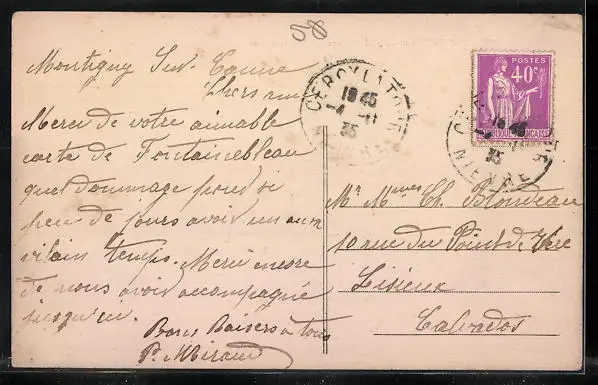 58
Montigny Sur Canne
Chers amis
Merci de votre aimable
carte de Fontainebleau
quel dommage pour si
peu de jours avoir un aussi
vilain temps. Merci encore
de nous avoir accompagné
jusqu'ici.
Bons Baisers à tous
CERCY LA TOUR
18 45
-4 -11
35
NIEVRE
POSTES
40c
18 45
35
NIEVRE
Mr Mmes Ch. Blondeau
10 rue du Point de Vue
Lisieux
Calvados